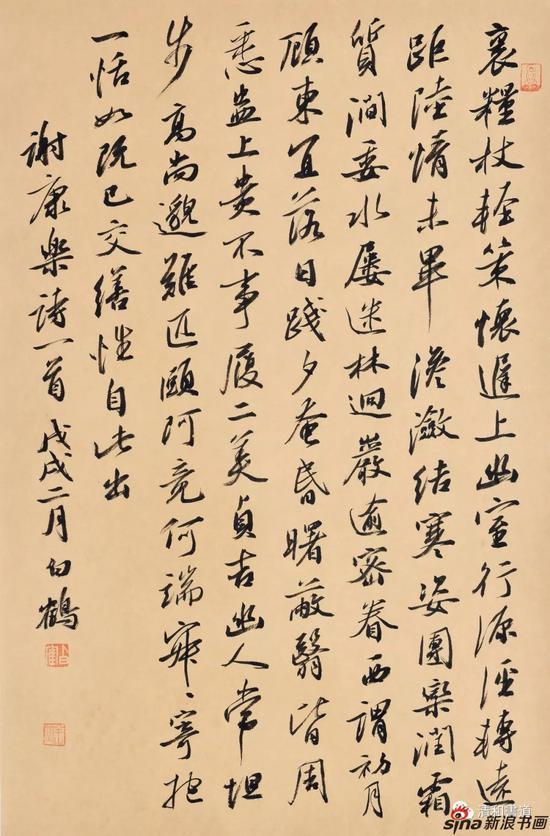 裹糧杖輕策懷遲上幽室行源徑轉遠
距陸情未畢澹瀲結寒姿團欒潤霜
質澗委水屢迷林迴巖逾密眷西謂初月
顧東宜落日踐夕奄昏曙蔽翳皆周
悉蠱上貴不事履二美貞吉幽人常坦
步高尚邈難匹頤阿竟何端寂〻寄抱
一恬如既已交繕性自此出
謝康樂詩一首戊戌二月白鶴
清和書道
sina新浪书画